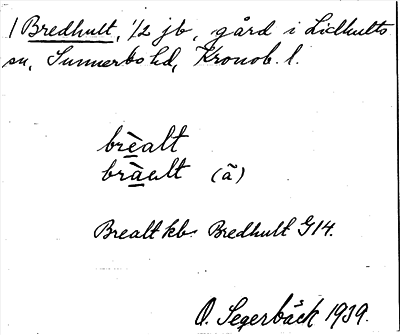 1 Bredhult, 1/2 jb, gård i Lidhults
sn, Sunnerbo hd, Kronob. l.
brèalt
bràult (ã)
Brealt kb. Bredhult G14.
O. Segerbäck 1939.